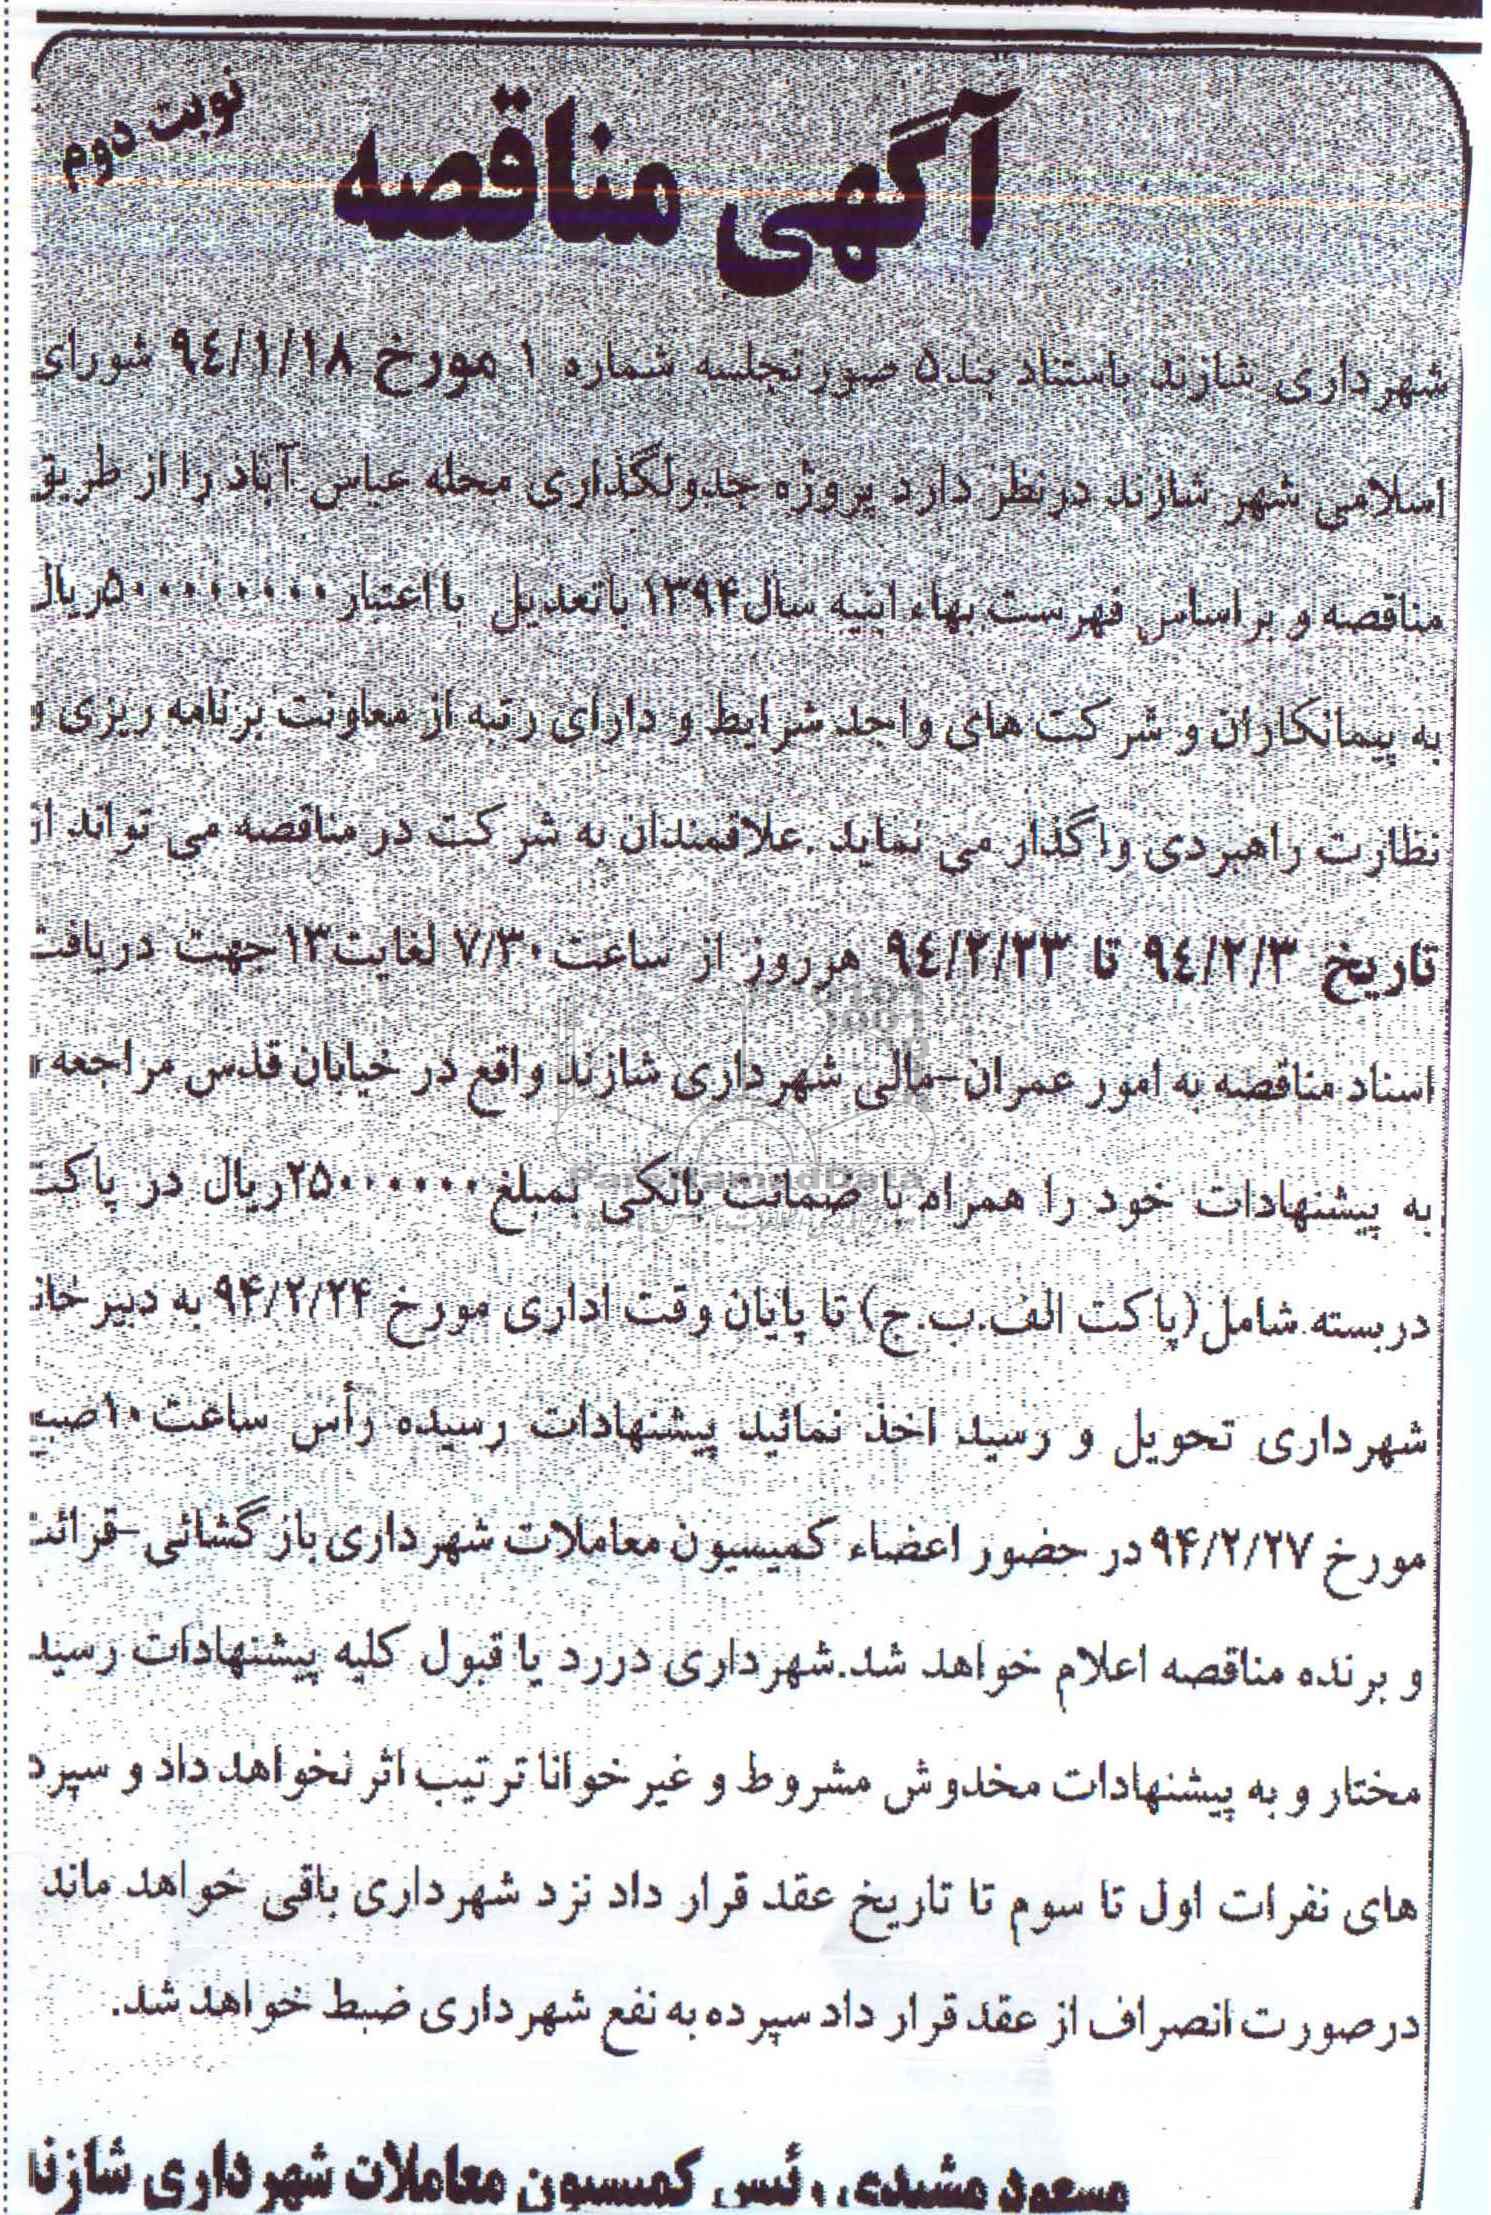 آگهی مناقصه
نوبت دوم
شهرداری شازند باستناد بند۵ صورتجلسه شماره ۱ مورخ ۹۴/۱/۱۸ شورای
اسلامی شهر شازند درنظر دارد پروژه جدولگذاری محله عباس آباد را از طریق
مناقصه و براساس فهرست بهاء ابنیه سال۱۳۹۴ باتعدیل با اعتبار ۵۰۰۰۰۰۰۰۰۰ریال
به پیمانکاران و شرکت های واجد شرایط و دارای رتبه از معاونت برنامه ریزی و
نظارت راهبردی واگذار می نماید .علاقمندان به شرکت در مناقصه می تواند از
تاریخ ۹۴/۲/۳ تا ۹۴/۲/۲۳ هرروز از ساعت ۷/۳۰ لغایت۱۳جهت دریافت
اسناد مناقصه به امور عمران-مالی شهرداری شازند واقع در خیابان قدس مراجعه و
به پیشنهادات خود را همراه با ضمانت بانکی بمبلغ ۲۵۰۰۰۰۰۰۰ریال در پاکت
دربسته شامل(پاکت الف.ب.ج) تا پایان وقت اداری مورخ ۹۴/۲/۲۴ به دبیرخانه
شهرداری تحویل و رسید اخذ نمائید پیشنهادات رسیده رأس ساعت۱۰صبح
مورخ ۹۴/۲/۲۷ در حضور اعضاء کمیسیون معاملات شهرداری بازگشائی -قرائت
و برنده مناقصه اعلام خواهد شد.شهرداری دررد یا قبول کلیه پیشنهادات رسید
مختار و به پیشنهادات مخدوش مشروط و غیرخوانا ترتیب اثر نخواهد داد و سپرد
های نفرات اول تا سوم تا تاریخ عقد قرار داد نزد شهرداری باقی خواهد ماند
درصورت انصراف از عقد قرار داد سپرده به نفع شهرداری ضبط خواهد شد.
مسعود مشیدی رئیس کمیسیون معاملات شهرداری شازند
ParsNamadData